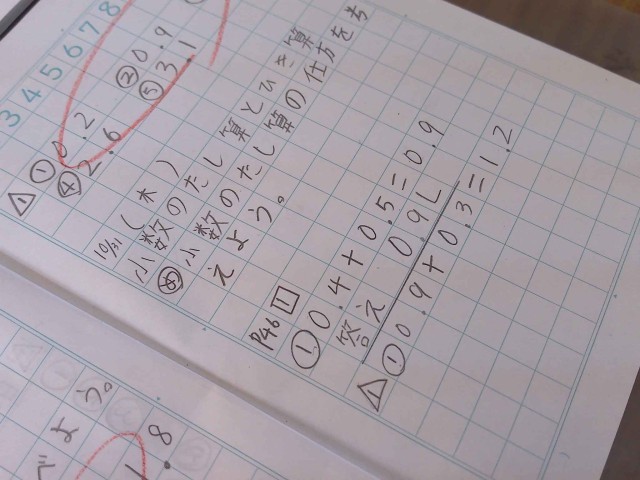 345678
⚠① 0.2 ② 0.9
④ 2.6 ⑤ 3.1
10/31 (木)
小数のたし算とひき算
め 小数のたし算の仕方を考
えよう。
P46 1
① 0.4+0.5=0.9
答え 0.9L
⚠① 0.9+0.3=1.2
べよう。
.8